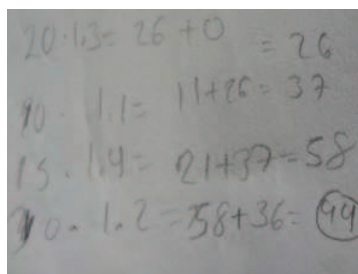 20 · 1.3 = 26 + 0 = 26
10 · 1.1 = 11 + 26 = 37
15 · 1.4 = 21 + 37 = 58
30 · 1.2 = 58 + 36 = 94